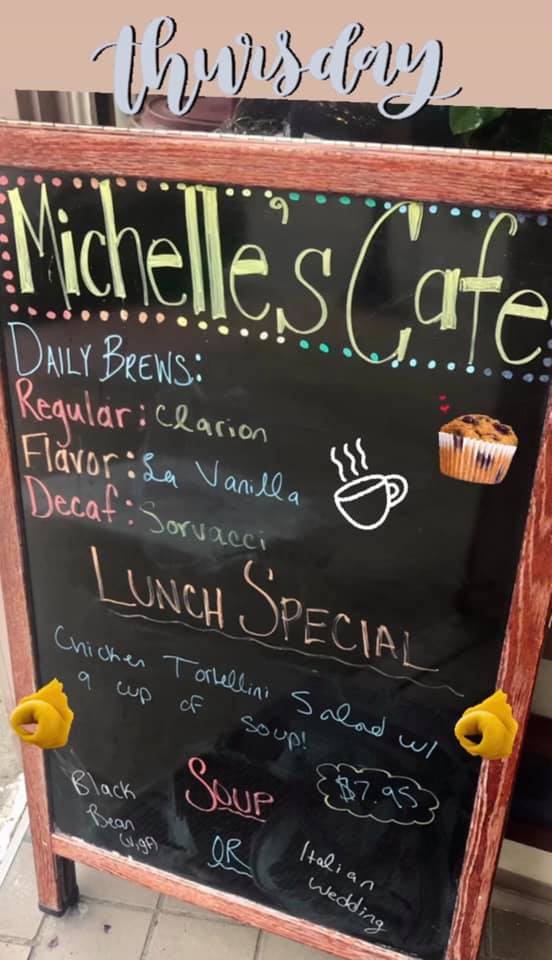 thursday
Michelle's Cafe
DAILY BREWS:
Regular: Clarion
Flavor: La Vanilla
Decaf: Sorvacci
LUNCH SPECIAL
Chicken Tortellini Salad w/
a cup of
soup!
$7.95
SOUP
Black
Bean
(V,gf)
OR
Italian
Wedding